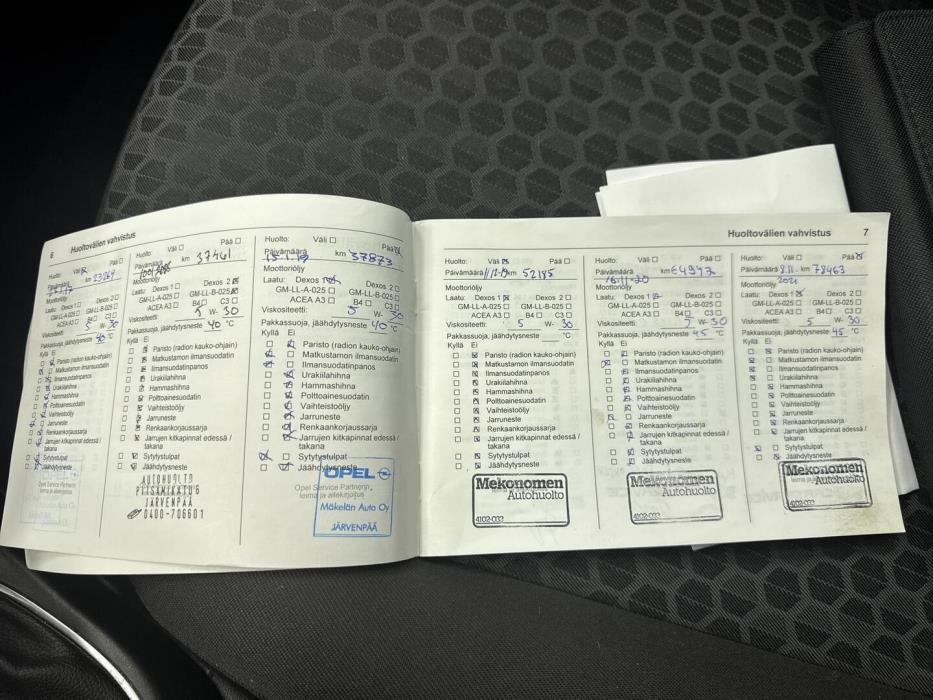 6 Huoltovälien vahvistus
Huolto: Väli ☒ Pää ☐
Päivämäärä km 23269
Moottoriöljy
Laatu: Dexos 1 ☐ Dexos 2 ☒
GM-LL-A-025 ☐ GM-LL-B-025 ☒
ACEA A3 ☐ B4 ☐ C3 ☐
Viskositeetti: 5 W- 30
Pakkassuoja, jäähdytysneste 40 °C
Kyllä Ei
Paristo (radion kauko-ohjain)
Matkustamon ilmansuodatin
Ilmansuodatinpanos
Urakiilahihna
Hammashihna
Polttoainesuodatin
Vaihteistoöljy
Jarruneste
Renkaankorjaussarja
Jarrujen kitkapinnat edessä /
takana
Sytytystulpat
Jäähdytysneste
Opel Service Partnerin
leima ja allekirjoitus
Huolto: Väli ☐ Pää ☐
Päivämäärä km 37461
Moottoriöljy
Laatu: Dexos 1 ☐ Dexos 2 ☒
GM-LL-A-025 ☐ GM-LL-B-025 ☒
ACEA A3 ☐ B4 ☐ C3 ☐
Viskositeetti: 5 W- 30
Pakkassuoja, jäähdytysneste 40 °C
Kyllä Ei
Paristo (radion kauko-ohjain)
Matkustamon ilmansuodatin
Ilmansuodatinpanos
Urakiilahihna
Hammashihna
Polttoainesuodatin
Vaihteistoöljy
Jarruneste
Renkaankorjaussarja
Jarrujen kitkapinnat edessä /
takana
Sytytystulpat
Jäähdytysneste
AUTOHUOLTO
PIISAMIKATU 6
JÄRVENPÄÄ
0400-706601
Huolto: Väli ☐ Pää ☒
Päivämäärä km 37873
Moottoriöljy
Laatu: Dexos 1 ☒ Dexos 2 ☐
GM-LL-A-025 ☐ GM-LL-B-025 ☐
ACEA A3 ☐ B4 ☐ C3 ☐
Viskositeetti: 5 W- 30
Pakkassuoja, jäähdytysneste 40 °C
Kyllä Ei
Paristo (radion kauko-ohjain)
Matkustamon ilmansuodatin
Ilmansuodatinpanos
Urakiilahihna
Hammashihna
Polttoainesuodatin
Vaihteistoöljy
Jarruneste
Renkaankorjaussarja
Jarrujen kitkapinnat edessä /
takana
Sytytystulpat
Jäähdytysneste
OPEL
Opel Service Partnerin
leima ja allekirjoitus
Mäkelän Auto Oy
JÄRVENPÄÄ
Huoltovälien vahvistus 7
Huolto: Väli ☒ Pää ☐
Päivämäärä 11/12-19 km 52185
Moottoriöljy
Laatu: Dexos 1 ☒ Dexos 2 ☐
GM-LL-A-025 ☐ GM-LL-B-025 ☐
ACEA A3 ☐ B4 ☐ C3 ☐
Viskositeetti: 5 W- 30
Pakkassuoja, jäähdytysneste °C
Kyllä Ei
Paristo (radion kauko-ohjain)
Matkustamon ilmansuodatin
Ilmansuodatinpanos
Urakiilahihna
Hammashihna
Polttoainesuodatin
Vaihteistoöljy
Jarruneste
Renkaankorjaussarja
Jarrujen kitkapinnat edessä /
takana
Sytytystulpat
Jäähdytysneste
Mekonomen
Autohuolto
4102-033
Huolto: Väli ☐ Pää ☐
Päivämäärä 16/11-20 km 64947
Moottoriöljy
Laatu: Dexos 1 ☒ Dexos 2 ☐
GM-LL-A-025 ☐ GM-LL-B-025 ☐
ACEA A3 ☐ B4 ☐ C3 ☐
Viskositeetti: 5 W- 30
Pakkassuoja, jäähdytysneste 45 °C
Kyllä Ei
Paristo (radion kauko-ohjain)
Matkustamon ilmansuodatin
Ilmansuodatinpanos
Urakiilahihna
Hammashihna
Polttoainesuodatin
Vaihteistoöljy
Jarruneste
Renkaankorjaussarja
Jarrujen kitkapinnat edessä /
takana
Sytytystulpat
Jäähdytysneste
Mekonomen
Autohuolto
4102-033
Huolto: Väli ☐ Pää ☒
Päivämäärä 9.11. km 78463
Moottoriöljy 2021
Laatu: Dexos 1 ☒ Dexos 2 ☐
GM-LL-A-025 ☐ GM-LL-B-025 ☐
ACEA A3 ☐ B4 ☐ C3 ☐
Viskositeetti: 5 W- 30
Pakkassuoja, jäähdytysneste 45 °C
Kyllä Ei
Paristo (radion kauko-ohjain)
Matkustamon ilmansuodatin
Ilmansuodatinpanos
Urakiilahihna
Hammashihna
Polttoainesuodatin
Vaihteistoöljy
Jarruneste
Renkaankorjaussarja
Jarrujen kitkapinnat edessä /
takana
Sytytystulpat
Jäähdytysneste
Mekonomen
Autohuolto
4102-033